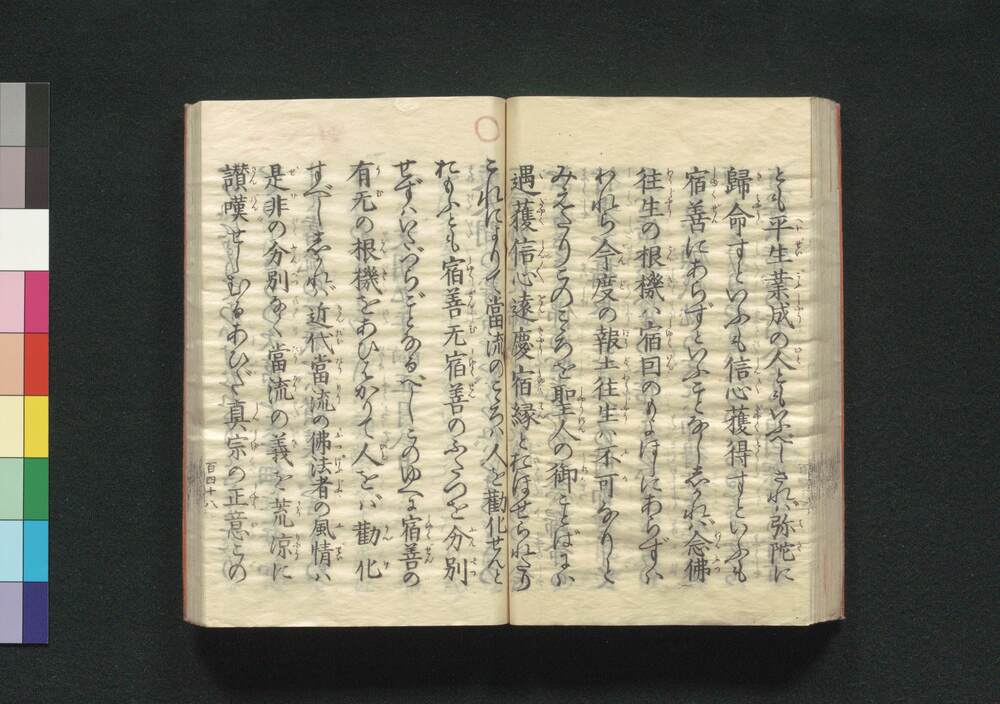 とも平生業成の人ともいふべしされバ弥陀に
歸命すといふも信心獲得すといふも
宿善にあらずといふことなししかれバ念佛
往生の根機ハ宿因のもよほしにあらずハ
われら今度の報土往生ハ不可なりと
みえたりこのこゝろを聖人の御ことばにハ
遇獲信心遠慶宿縁とおほせられたり
これによりて當流のこゝろハ人を勸化せんと
おもふとも宿善无宿善のふたつを分別
せずハいたづらごとなるべしこのゆへに宿善の
有无の根機をあひはかりて人をバ勸化
すべししかれバ近代當流の佛法者の風情ハ
是非の分別なく當流の義を荒凉に
讃嘆せしむるあひだ真宗の正意この
百四十八